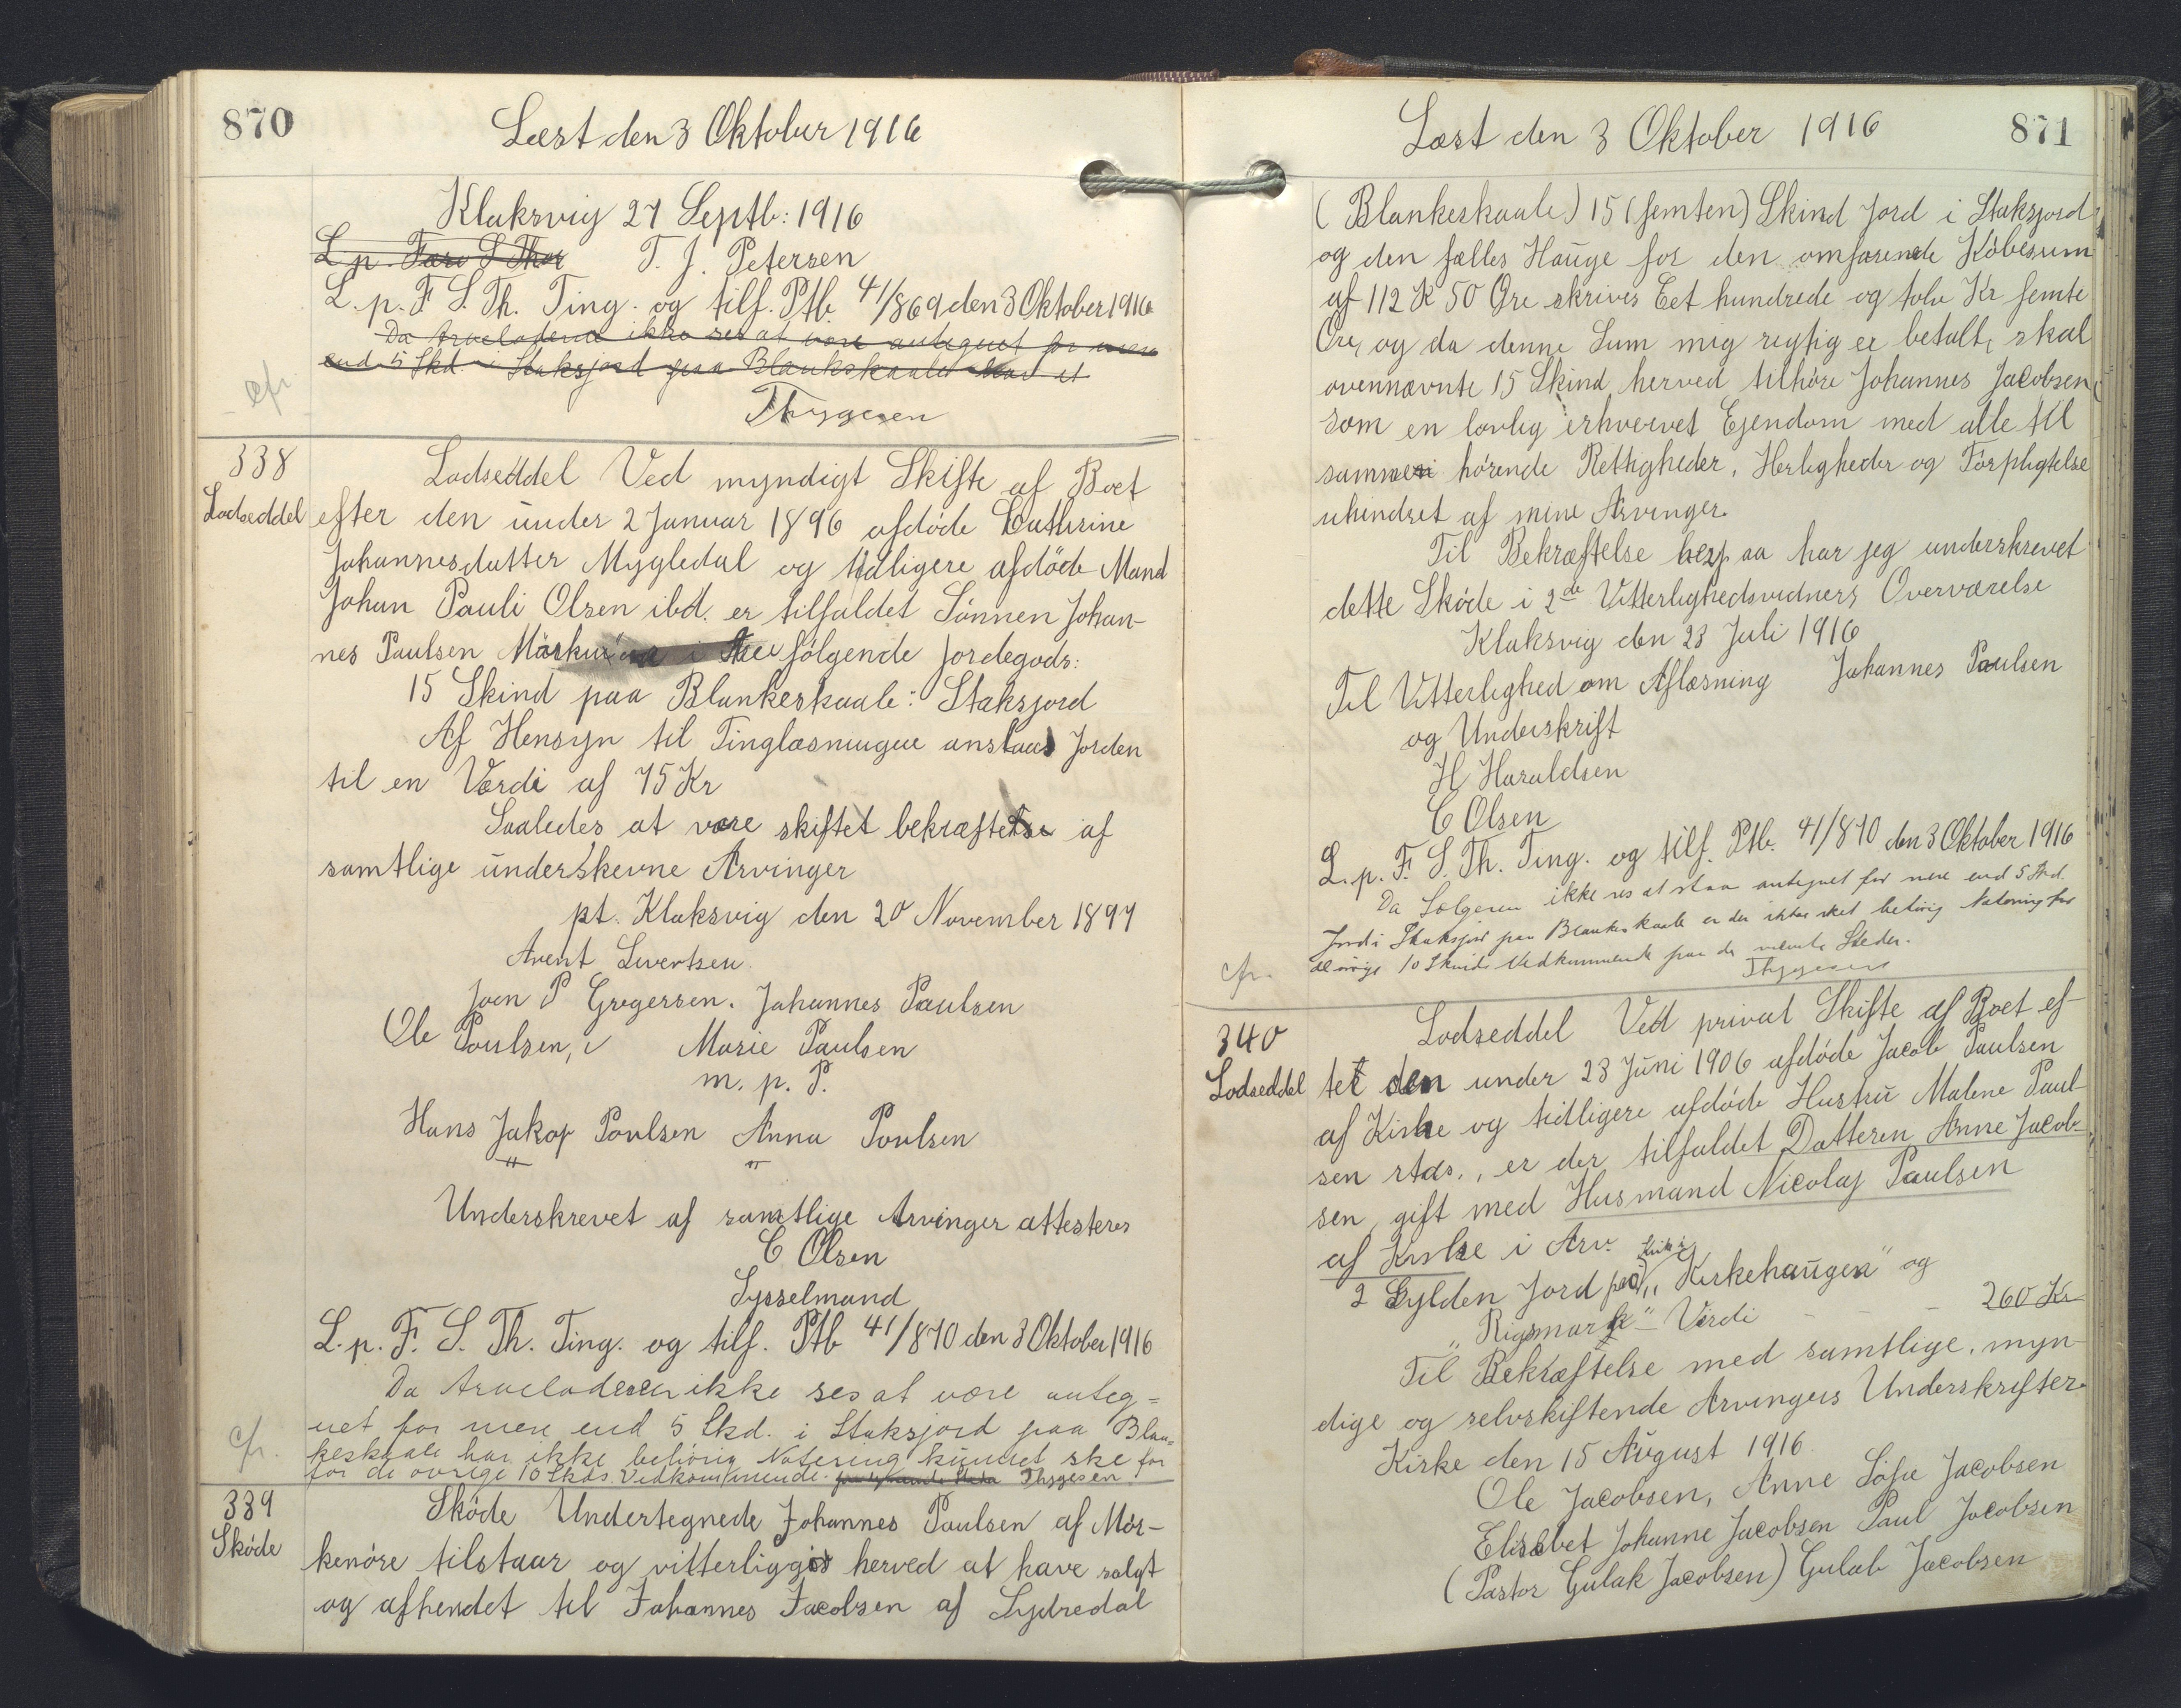 870
Læst den 3 Oktober 1916
Klaksvig 27 Septb: 1916
L. p. Færø S Thor T. J. Petersen
L. p. F. S. Th. Ting. og tilf. Ptb. 41/869 den 3 Oktober 1916
Da Arveladeren ikke ses at være antegnet for mere
end 5 Skd. i Staksjord paa Blankskaale
Thygesen
cfr.
338
Lodseddel
Lodseddel Ved myndigt Skifte af Boet
efter den under 2 Januar 1896 afdøde Cathrine
Johannesdatter Mygledal og tidligere afdöde Mand
Johan Pauli Olsen ibd. er tilfaldet Sönnen Johan-
nes Paulsen i følgende Jordegods:
15 Skind paa Blankeskaale: Staksjord
Af Hensyn til Tinglæsningen anslaas Jorden
til en Værdi af 75 Kr
Saaledes at være skiftet bekræftes af
samtlige underskevne Arvinger
pt. Klaksvig den 20 November 1897
Arent Sivertsen.
Joen P Gregersen. Johannes Paulsen
Ole Poulsen, Marie Paulsen
m. p. P.
Hans Jakop Poulsen Anna Poulsen
" "
Underskrevet af samtlige Arvinger attesteres
C Olsen
Sysselmand
L. p. F. S. Th. Ting. og tilf. Ptb 41/870 den 3 Oktober 1916
Da Arveladeren ikke ses at være anteg=
net for mere end 5 Skd. i Staksjord paa Blan=
keskaale har ikke behörig Notering kunnet ske for
for de øvrige 10 Skds. Vedkommende. Thygesen
cfr.
339
Sköde
Sköde Undertegnede Johannes Paulsen af Mör-
kenöre tilstaar og vitterliggør herved at have solgt
og afhendet til Johannes Jacobsen af Sydredal
Læst den 3 Oktober 1916
871
(Blankeskaale) 15 (femten) Skind Jord i Staksjord
og den fælles Hauge for den omførende Köbesum
af 112 K 50 Øre skriver Eet hundrede og tolv Kr femte
Øre, og da denne Sum mig regtig er betalt, skal
ovennævnte 15 Skind herved tilhöre Johannes Jacobsen
som en lovlig erhvervet Ejendom med alle til
samme hörende Rettigheder, Herligheder og Förpligtelse
uhindret af mine Arvinger.
Til Bekræftelse herpaa har jeg underskrevet
dette Sköde i 2de Vitterlighedsvidners Overværelse
Klaksvig den 23 Juli 1916
Til Vitterlighed om Aflæsning Johannes Paulsen
og Underskrift
H Haraldsen
C Olsen
L. p. F. S. Th. Ting. og tilf. Ptb. 41/870 den 3 Oktober 1916
Da Sælgeren ikke ses at staa antegnet for mere end 5 Skd.
Jord i Staksjord paa Blankeskaale er der ikke sket behörig Notering for
de øvrige 10 Skinds Vedkommende paa de nævnte Steder.
Thygesen
cfr.
340
Lodseddel
Lodseddel Ved privat Skifte af Boet ef-
tet den under 23 Juni 1906 afdöde Jacob Paulsen
af Kirke og tidligere afdöde Hustru Malene Paul-
sen stds., er der tilfaldet Datteren Anne Jacob-
sen, gift med Husmand Nicolaj Paulsen
af Kirke i Arv.
2 Gylden Jord paa Kirke „Kirkehaugen" og
„Rigsmark" Værdi - - 260 Kr
Til Bekræftelse med samtlige, myn-
dige og selvskiftende Arvingers Underskrifter.
Kirke den 15 August 1916.
Ole Jacobsen, Anne Sofie Jacobsen
Elisabet Johanne Jacobsen Paul Jacobsen
(Pastor Gulak Jacobsen) Gulak Jacobsen